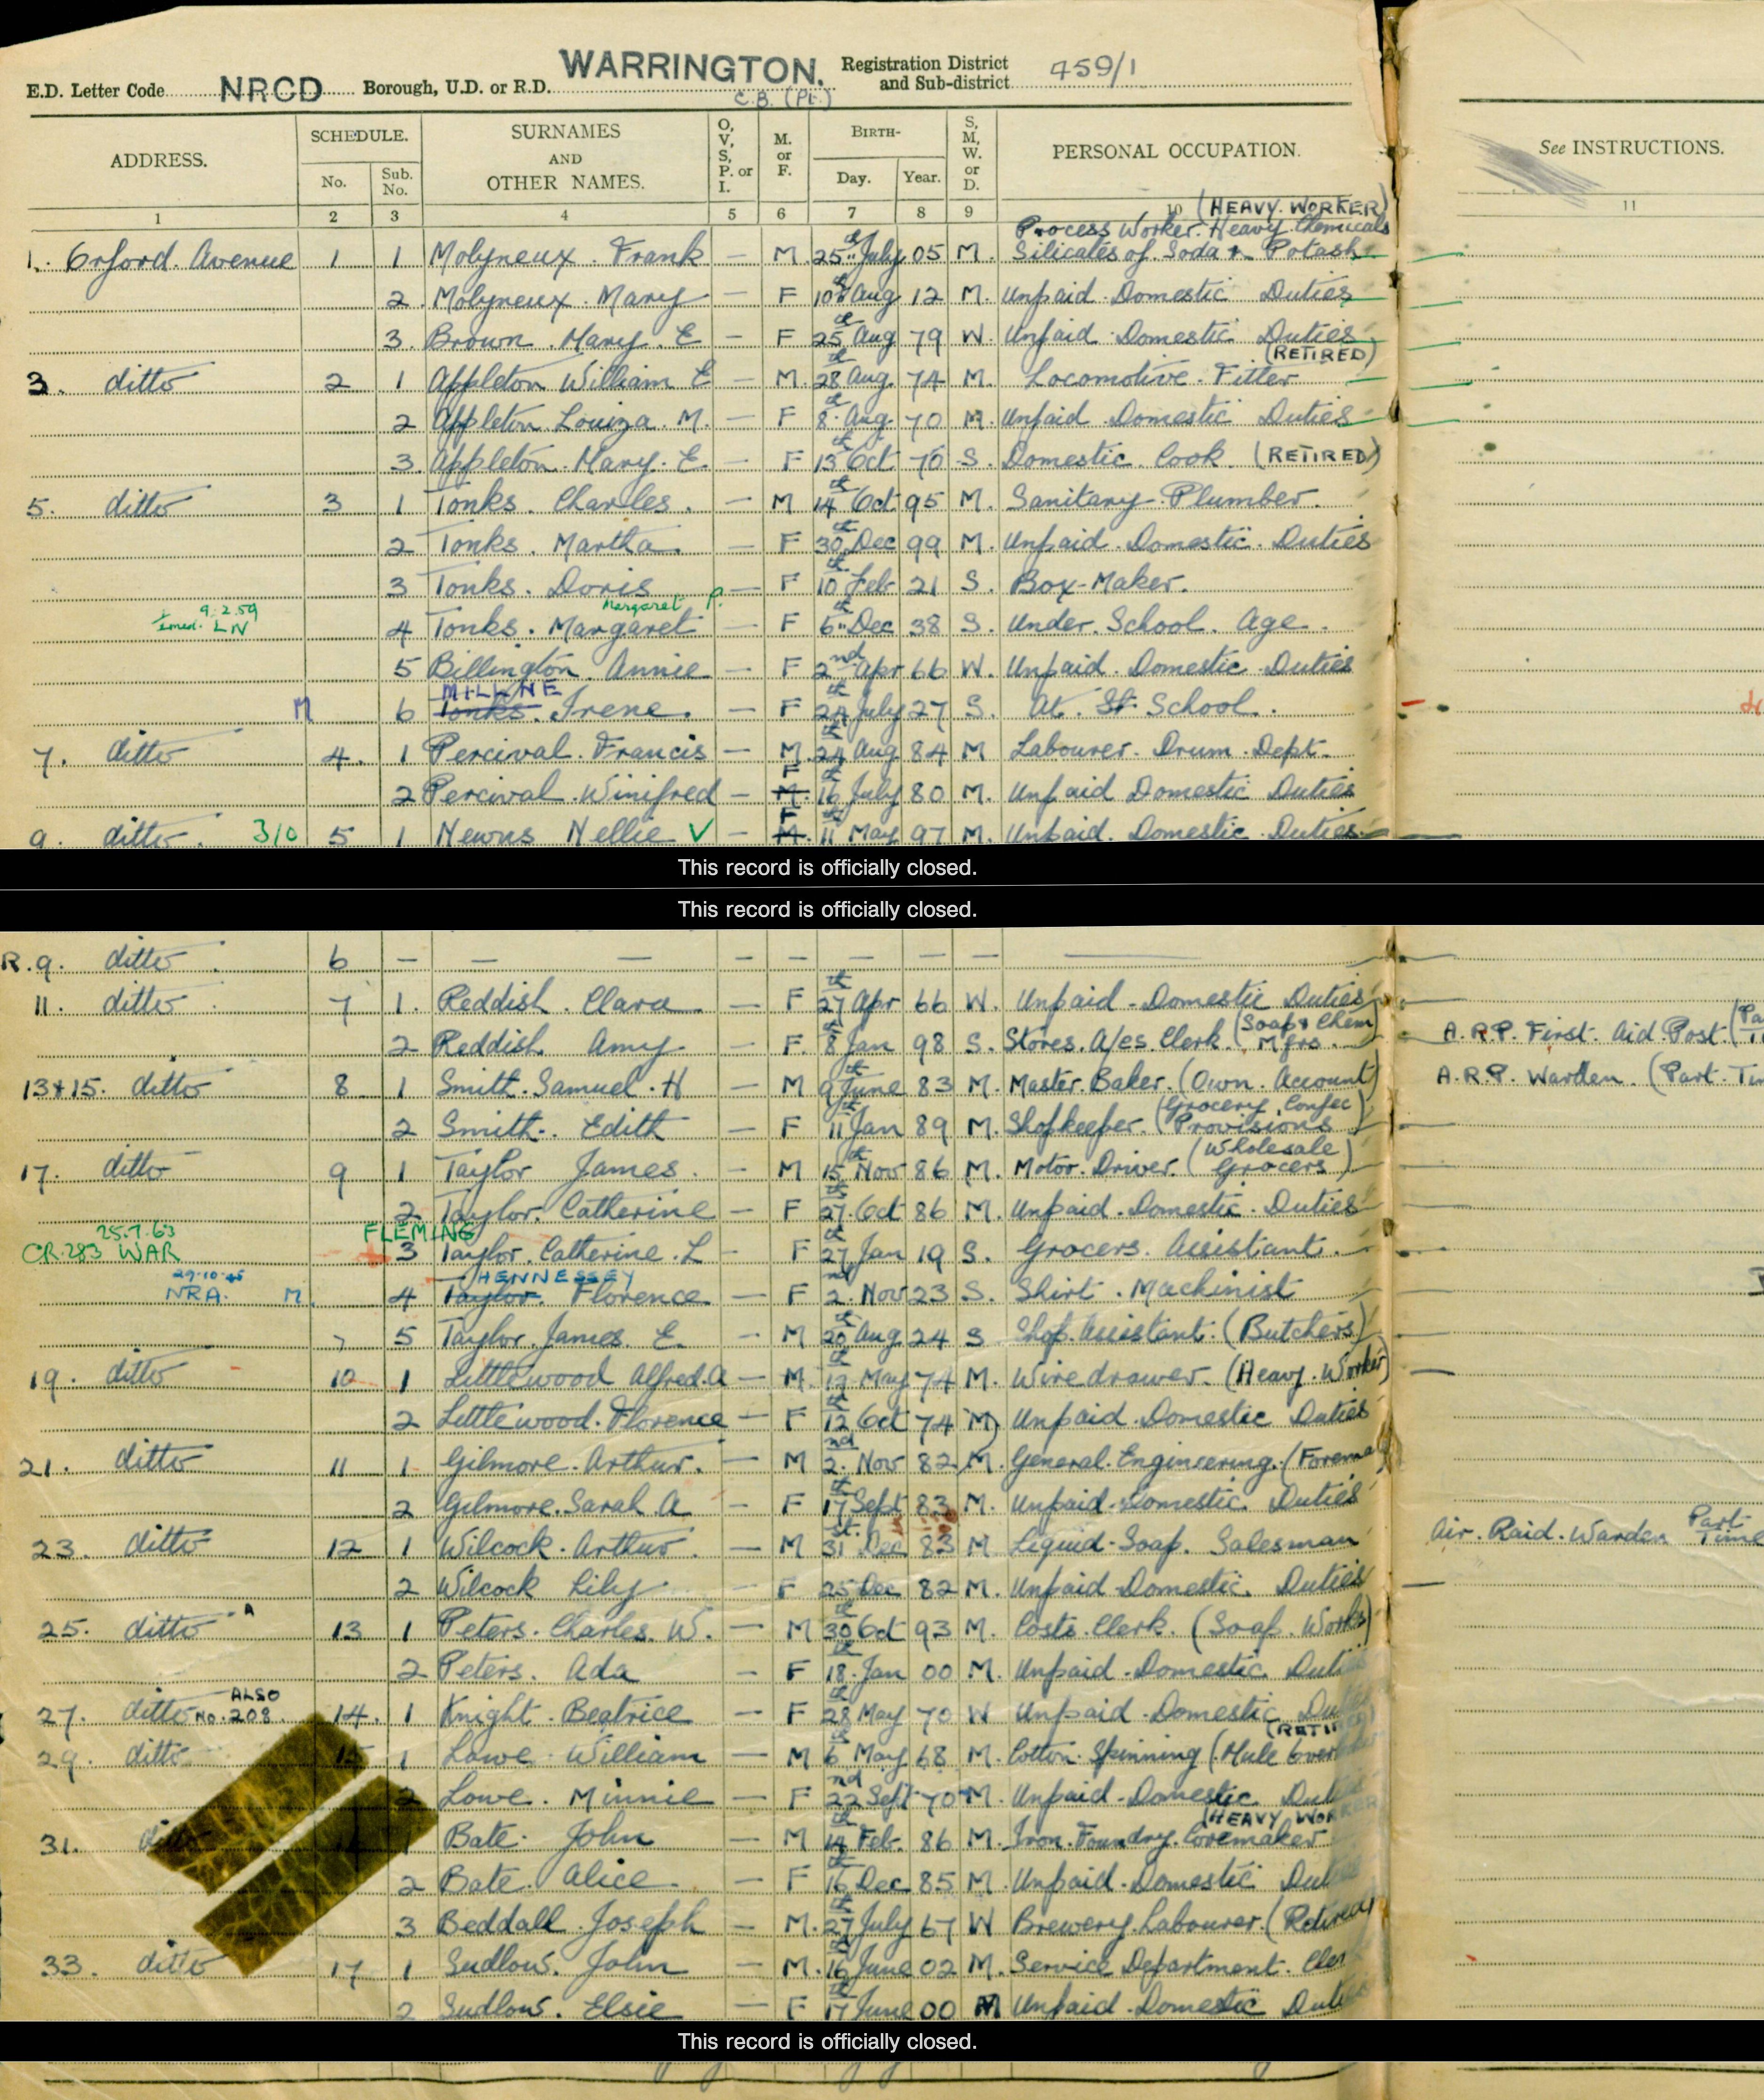 E.D. Letter Code NRCD Borough, U.D. or R.D. WARRINGTON. C.B. (Pt.) Registration District and Sub-district 459/1
ADDRESS. SCHEDULE. No. Sub. No. SURNAMES AND OTHER NAMES. O, V, S, P. or I. M. or F. BIRTH- Day. Year. S, M, W. or D. PERSONAL OCCUPATION. See INSTRUCTIONS.
1 2 3 4 5 6 7 8 9 10 11
(HEAVY WORKER)
Process Worker. Heavy Chemicals
1. Orford. Avenue 1 1 Molyneux. Frank — M. 25th July 05 M. Silicates of Soda & Potash
2. Molyneux. Mary — F 10th Aug 12 M. Unpaid Domestic Duties
3. Brown. Mary. E — F 25th Aug 79 W. Unpaid Domestic Duties
(RETIRED)
3. ditto 2 1 Appleton William E — M. 28th Aug 74 M. Locomotive Fitter
2 Appleton Louiza. M. — F 8th Aug 70 M. Unpaid Domestic Duties
3 Appleton. Mary. E. — F 13th Oct 76 S. Domestic Cook (RETIRED)
5. ditto 3 1 Tonks. Charles. — M 14th Oct 95 M. Sanitary Plumber.
2 Tonks. Martha. — F 30th Dec 99 M. Unpaid Domestic Duties
3 Tonks. Doris — F 10th Feb 21 S. Box-Maker.
9.2.59 Margaret P.
LN 4 Tonks. Margaret — F 6th Dec 38 S. Under School Age.
5 Billington Annie — F 2nd Apr 66 W. Unpaid Domestic Duties
MILLNE
M 6 Tonks. Irene. — F July 27 S. At School.
7. ditto 4. 1 Percival. Francis — M. 24th Aug 84 M Labourer. Drum Dept.
F
2 Percival. Winifred — M. 16th July 80 M. Unpaid Domestic Duties
F
9. ditto. 310 5 1 Newns Nellie V — M. 11th May 97 M. Unpaid Domestic Duties
This record is officially closed.
This record is officially closed.
R.9. ditto 6 — — — — — — — —
11. ditto 7 1. Reddish. Clara — F 27th Apr 66 W. Unpaid Domestic Duties
2 Reddish Amy — F. 8th Jan 98 S. Stores A/cs. Clerk (Soap & Chem Mfrs. A.R.P. First Aid Post (Pa
13&15. ditto 8 1 Smith. Samuel. H — M 9th June 83 M. Master Baker. (Own Account) A.R.P. Warden. (Part. Tim
2 Smith. Edith — F 11th Jan 89 M. Shopkeeper. (Grocery, Confec Provisions)
17. ditto 9 1 Taylor James. — M 15th Nov 86 M. Motor Driver. (Wholesale Grocers)
2 Taylor. Catherine — F 27th Oct 86 M. Unpaid Domestic Duties
25.7.63 FLEMING
CR.283 WAR 3 Taylor. Catherine. L — F 27th Jan 19 S. Grocers Assistant.
29.10.45 HENNESSEY
NRA. M. 4 Taylor. Florence — F 2nd Nov 23 S. Shirt Machinist
5 Taylor. James. E. — M 20th Aug 24 S Shop Assistant. (Butchers)
19. ditto 10 1 Littlewood Alfred. A — M. May 74 M. Wiredrawer. (Heavy Worker)
2 Littlewood. Florence — F 12th Oct 74 M Unpaid Domestic Duties
21. ditto 11 1 Gilmore. Arthur. — M 2nd Nov 82 M. General Engineering. (Forema
2 Gilmore. Sarah. A — F 17th Sept 83 M. Unpaid Domestic Duties
23. ditto 12 1 Wilcock. Arthur. — M 31st Dec 83 M Liquid Soap Salesman Air Raid Warden Part Time
2 Wilcock Lily — F 25 Dec 82 M. Unpaid Domestic Duties
25. ditto A 13 1 Peters. Charles. W. — M 30th Oct 93 M. Costs Clerk. (Soap Works)
2 Peters. Ada — F 18th Jan 00 M. Unpaid Domestic Duti
27. ditto ALSO NO. 208. 14. 1 Knight. Beatrice — F 28th May 70 W Unpaid Domestic Du
(RETIRED)
29. ditto 15 1 Lowe. William — M 6th May 68 M. Cotton Spinning (Mule Over
2 Lowe. Minnie — F 22nd Sept 70 M. Unpaid Domestic Du
(HEAVY WORKER
31. ditto 1 Bate. John — M 14th Feb. 86 M. Iron Foundry Coremaker
2 Bate. Alice. — F 16th Dec 85 M. Unpaid Domestic Du
3 Beddall. Joseph — M. 27th July 67 W Brewery Labourer. (Retired)
33. ditto 17 1 Sudlow. John — M. 16th June 02 M. Service Department. Cler
2 Sudlow. Elsie — F 17th June 00 M Unpaid Domestic Duti
This record is officially closed.